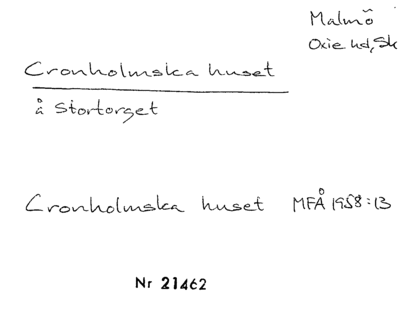 Malmö
Oxie hd, Sk
Cronholmska huset
å Stortorget
Cronholmska huset MFÅ 1958:13
Nr 21462